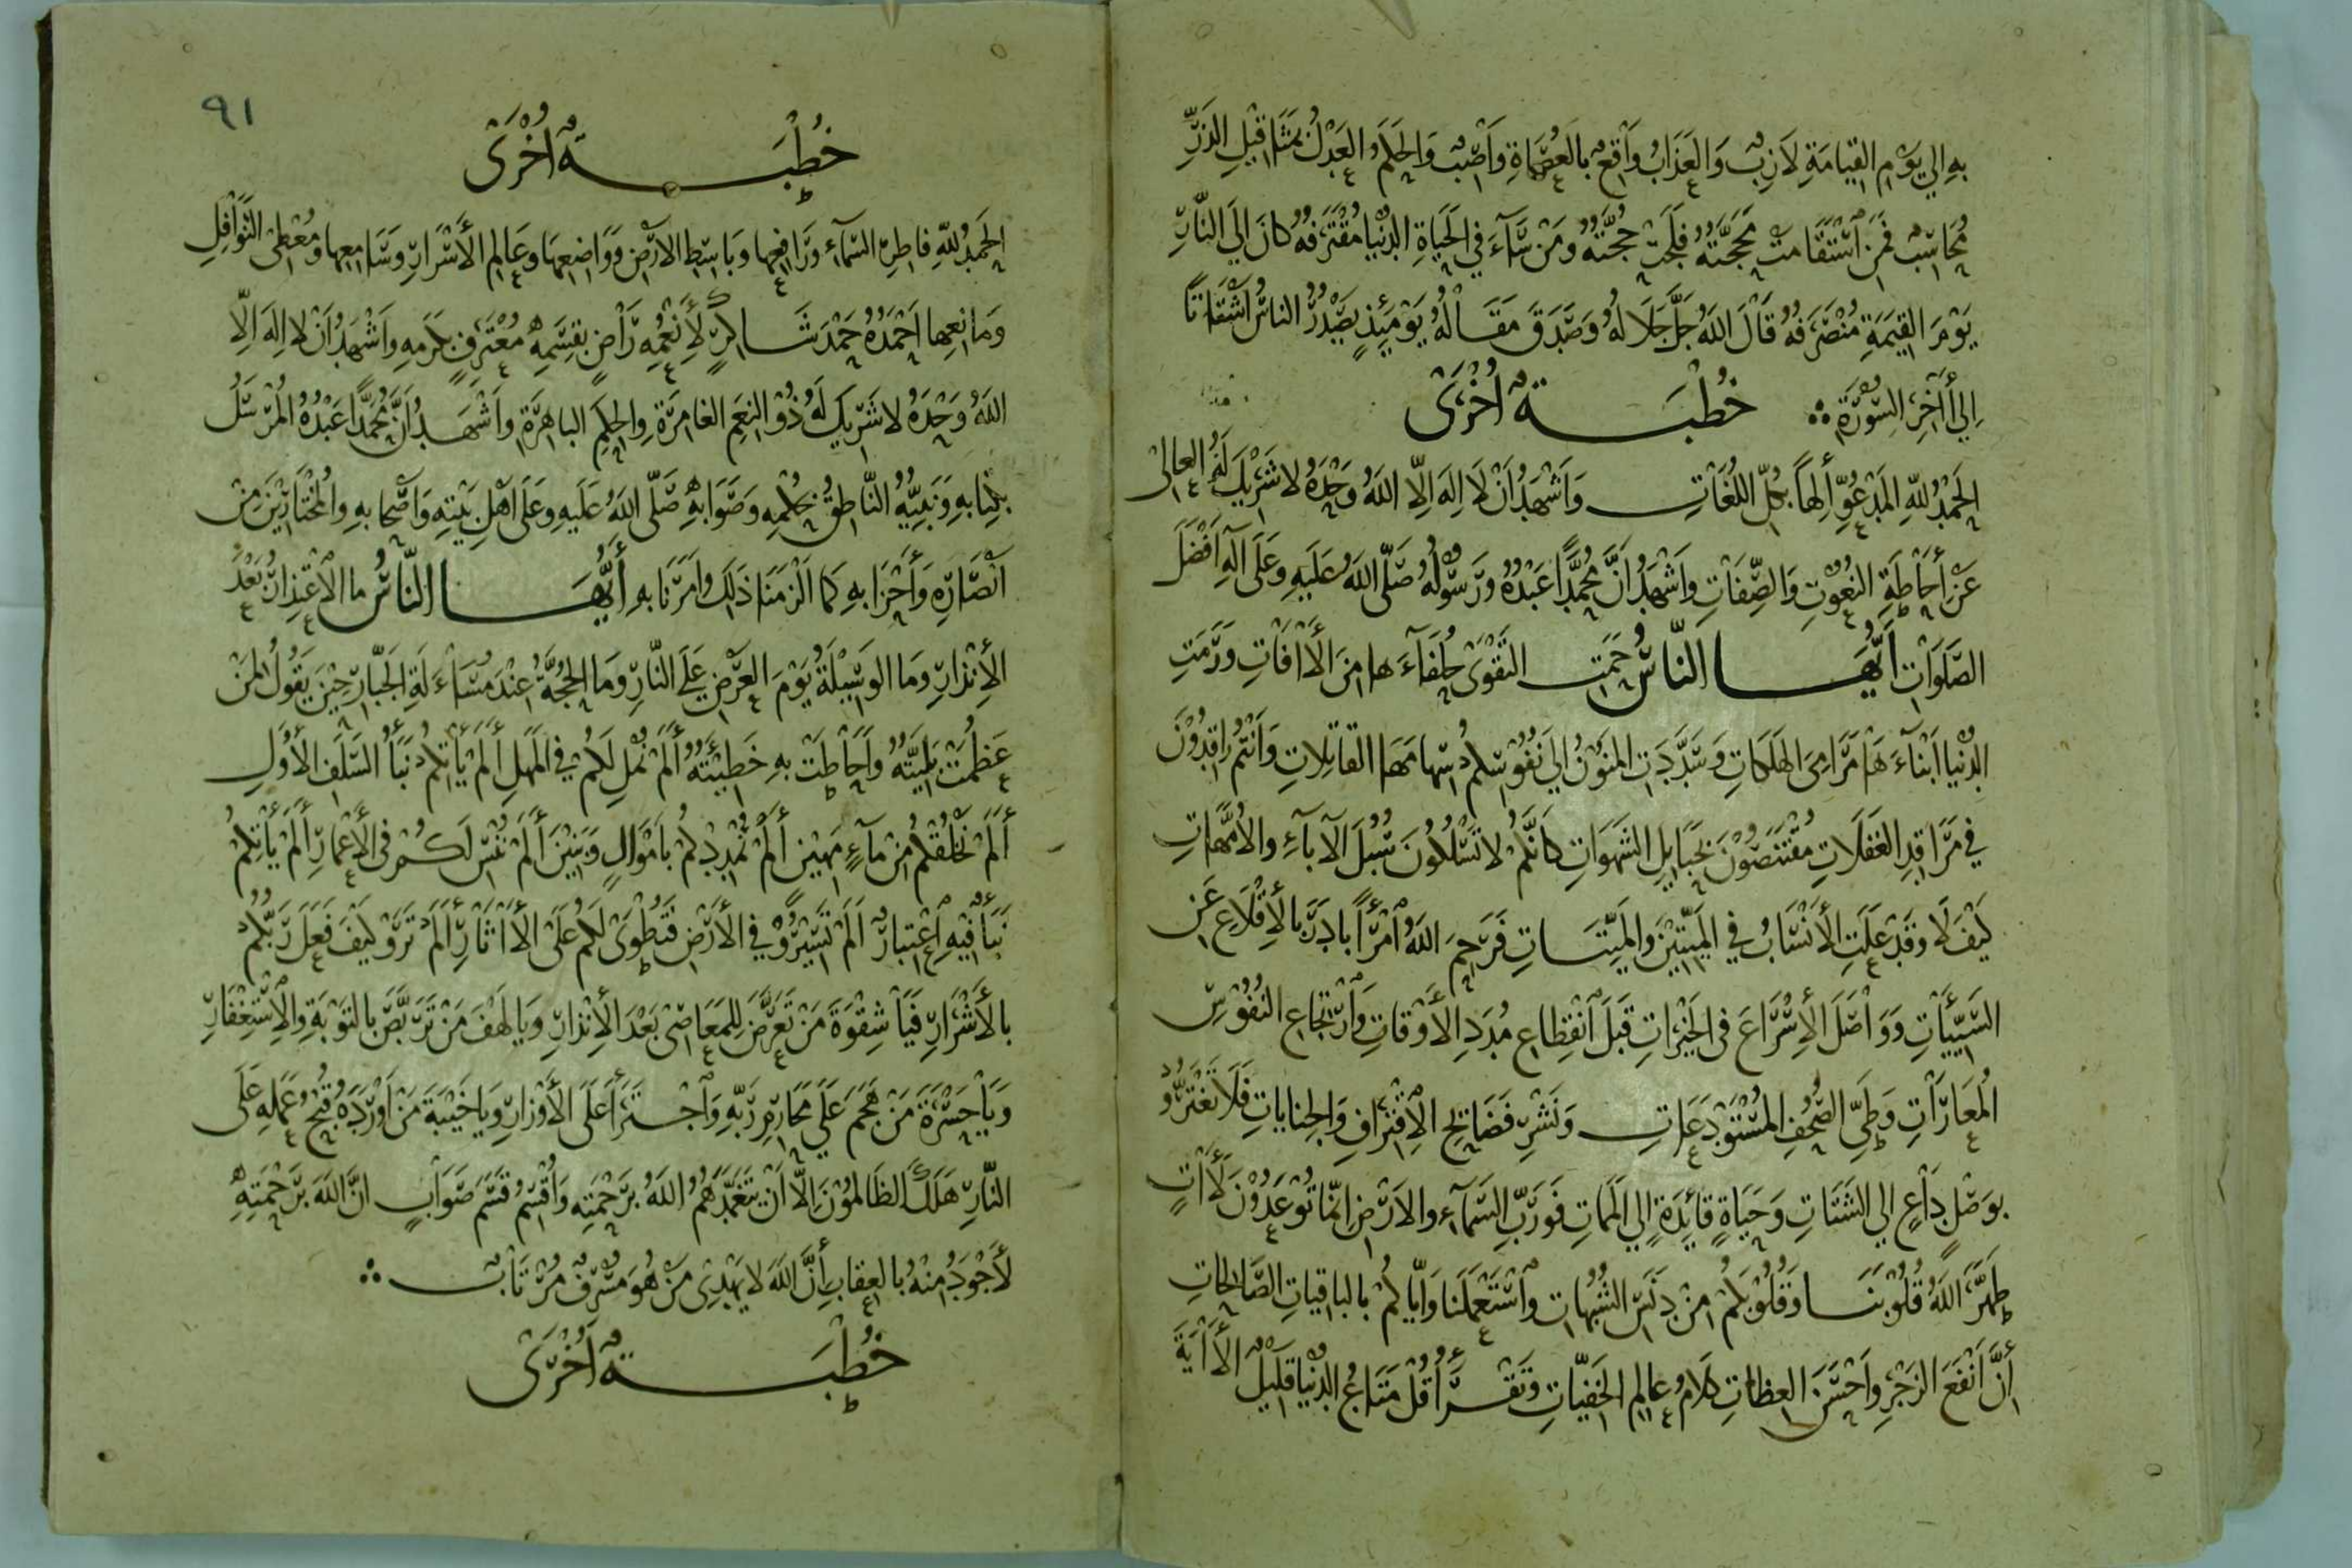 بِهِ إِلي يَوْمِ القِيَامَةِ لَازِبٌ وَالعَذَابُ وَاقِعٌ بالعُصَاةِ وَاصِبٌ وَالحَكَمُ العَدْلُ بمَثَاقِيلِ الذَرِّ
مُحَاسِبٌ فَمَنِ اسْتَقَامَتْ مَحَجَّتُهُ فَلَجَتْ حُجَّتُهُ وَمَنْ سَآءَ فِي الحَيَاةِ الدُنْيَا مُقْتَرَفُهُ كَانَ إِلَي النَّارِ
يَوْمَ القِيمَةِ مُنْصَرَفُهُ قَالَ اللهُ جَلَّ جَلَالهُ وَصَدَقَ مَقَالهُ يَوْمَئِذٍ يَصْدُرُ الناسُ اَشْتَاتًا
اِلي أخِرِ السُوْرَةِ
خُطْبَةٌ اُخْرَى
الحَمْدُ للهِ المَدْعُوِّ اِلهاً بكُلّ اللُغَاتِ وَاَشْهَدُ اَنْ لَا اِلهَ اِلّا اللهُ وَحْدَهُ لا شَرِيْكَ لَهُ العالِى
عَنْ أحَاطَةِ النعُوْتِ وَالصِّفَاتِ وَاشْهَدُ انَّ مُحَمَّدًا عَبْدُهُ وَرَسُوْلُهُ صَلّى اللهُ عَلَيهِ وَعَلَى آلهِ اَفْضَلَ
الصَّلَوَاتِ اَيُّهَا الناسُ حَمَتِ التَقْوَى حُلَفَآءَها مِنَ الأفَاتِ وَرَمَتِ
الدُنْيا اَبْنَآءَهَا مَرَامِىَ الهَلَكَاتِ وَسَدَّدَتِ المَنوْنُ اِلَى نُفُوْسِكُمْ سِهَامَهَا القاتِلاتِ وَاَنْتُمْ رَاقِدُوْنَ
في مَرَاقِدِ الغَفَلَاتِ مُقْتَنَصُوْنَ بحَبَايلِ الشَهَوَاتِ كَاَنَّكُمْ لا تَسْلُكُونَ سُبُلَ الآبآءِ والأُمَّهَاتِ
كَيْفَ لَا وَقَدْ عَلَتِ الأنْسَابُ في المَيِّتِيْنَ وَالمَيِّتَاتِ فَرَحِمَ اللهُ اَمْرَأً بادَرَ بالأِقْلَاعِ عَنِ
السَيِّئَاتِ وَوَاصَلَ الأِسْرَاعَ فى الخَيْرَاتِ قَبْلَ اَنْقِطَاعِ مُدَدِ الأَوْقاتِ وَاَرْتجَاعِ النُفُوْسِ
المُعَارَاتِ وَطَيِّ الصُحُفِ المُسْتَوْدَعَاتِ وَنَشْرِ فَضَايحِ الِاقْتِرَافِ وَالجنَاياتِ فَلَا تَغْتَرُّوْا
بوَصْلٍ دَاعٍ الي الشَتَاتِ وَحَيَاةٍ قائِدَةٍ اِلي المَمَاتِ فَوَرَبِّ السَمَآءِ والاَرْضِ اِنّمَا تُوْعَدُوْنَ لَأتٍ
طَهَّرَ اللهُ قُلُوْبَنَا وَقُلُوْبَكُمْ مِنْ دَنَسِ الشُبُهَاتِ وَاَسْتَعْمَلَنَا وَاِيّاكُمْ بالبَاقِيَاتِ الصَّالحَاتِ
اِنَّ اَنْفَعَ الزَجْرِ وَاَحْسَنَ العِظَاتِ كَلَامُ عالِمِ الخَفِيّاتِ وَتَقْرَأُ قُلْ مَتَاعُ الدُنْيَا قَلِيْلٌ الأَيَةَ
٩١
خُطْبَةٌ اُخْرَى
الحَمْدُ للهِ فاطِرِ السَمَآءِ وَرَافِعِها وَبَاسِطِ الاَرْضِ وَوَاضِعِهَا وَعَالِمِ الأَسْرَارِ وَسَامِعِها وَمُعْطِى النَوَافِلِ
وَمَانعِها اَحْمَدُهُ حَمْدَ شَاكِرٍ لِأَنْعُمِهِ رَاضٍ بقِسَمِهِ مُعْتَرِفٍ بكَرَمِهِ وَاَشْهَدُ اَنْ لا اِلهَ اِلّا
اللهُ وَحْدَهُ لا شَرِيكَ لَهُ ذُوْ النِعَمِ الغَامِرَةِ وَالحِكَمِ البَاهِرَةِ وَاَشْهَدُ اَنَّ مُحَمَّدًا عَبْدُهُ المُرْسَلُ
بكِتَابهِ وَنَبيُّهُ النَّاطِقُ بحُكْمِهِ وَصَوَابهِ صَلّى اللهُ عَلَيهِ وَعَلَى اَهْلِ بَيْتِهِ وَاَصْحَابهِ وَالمُخْتَارِيْنَ مِنْ
اَنْصَارِهِ وَأَحْزَابهِ كَمَا اَلْزَمَنَا ذَلِكَ وَاَمَرَنَا بهِ أَيُّهَا النَّاسُ ما الِاعْتِذَارُ بَعْدَ
الأِنْذَارِ وَمَا الوَسِيْلَةُ يَوْمَ العَرْضِ عَلَى النَّارِ وَمَا الحُجَّةُ عِنْدَ مُسَاءَلَةِ الجَبّارِ حِيْنَ يَقُولُ لمَنْ
عَظُمَتْ بَلِيَّتُهُ وَاَحَاطَتْ بهِ خَطِيْئَتُهُ أَلَمْ نُمْلِ لَكُمْ فِي المَهَلِ أَلَمْ يَأْتِكُمْ نَبَأُ السَلَفِ الأوَّلِ
أَلَمْ نَخْلُقْكُمْ مِنْ مآءٍ مَهِيْنٍ أَلَمْ نُمْدِدْكُمْ بأَمْوَالٍ وَبَنِيْنَ أَلَمْ نُنْسِ لَكُمْ فى الأَعْمَارِ أَلَمْ يَأْتِكُمْ
نَبَأٌ فِيْهِ اَعْتِبَارٌ اَلَمْ تَسِيْرُوْا في الأَرْضِ فَتُطْوَى لَكُمْ عَلَى الأَثَارِ أَلَمْ تَرَوْا كَيْفَ فَعَلَ رَبُّكُمْ
بالأَشْرَارِ فَيَا شِقْوَةَ مَنْ تَعَرَّضَ لِلمَعَاصِىْ بَعْدَ الأِنْذَارِ وَيَا لَهْفَ مَنْ تَرَبَّصَ بالتَوْبَةِ وَالِاسْتِغْفَارِ
وَيَا حَسْرَةَ مَنْ هَجَمَ عَلَى مَحَارِمِ رَبّهِ وَاَجْتَرَأَ عَلَى الأَوْزَارِ وَيَا خَيْبَةَ مَنْ اَوْرَدَهُ قُبْحُ عَمَلِهِ عَلَى
النَّارِ هَلَكَ الظَالِمُوْنَ اِلّا اَنْ يَتَغَمَّدَهُمُ اللهُ برَحْمَتِهِ وَاُقْسِمُ قَسَمَ صَوَابٍ انَّ اللهَ برَحْمَتِهِ
لَأَجْوَدُ مِنْهُ بالعِقَابِ أنَّ اللهَ لا يَهْدِى مَنْ هُوَ مُسْرِفٌ مُرْتَابٌ
خُطْبَةٌ اُخْرَى